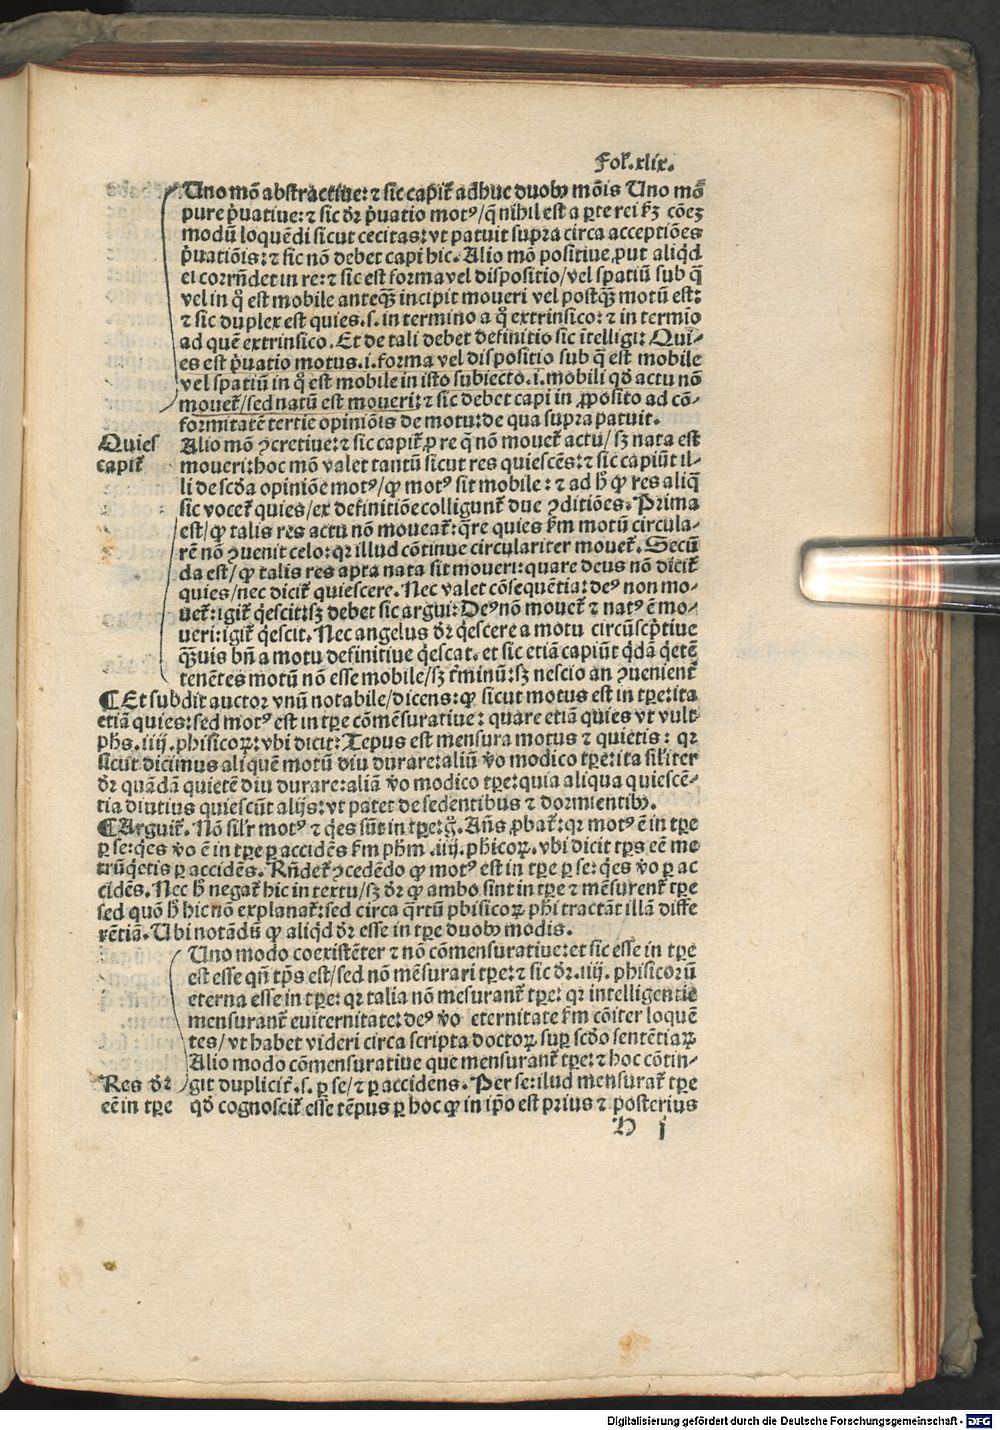 Fol. xlix.
Uno mō abstractiue: ⁊ sic capiť adhuc duobꝰ mōis Uno mō
pure p̄uatiue: ⁊ sic dr̄ p̄uatio motꝰ/ q̄ nihil est a ꝑte rei ẜꝫ cōeꝫ
modū loquēdi sicut cecitas: vt patuit supra circa acceptiōes
p̄uatiōis: ⁊ sic nō debet capi hic. Alio mō positiue ꝓut aliqͥd
ei corrn̄det in re: ⁊ sic est forma vel dispositio/ vel spatiū sub q̄
vel in qͦ est mobile anteqꝫ̄ incipit moueri vel postqꝫ̄ motū est:
⁊ sic duplex est quies. s. in termino a qͦ extrinsico: ⁊ in termio
ad quē extrinsico. Et de tali debet definitio sic ītelligi: Qui-
es est p̄uatio motus. i. forma vel dispositio sub q̄ est mobile
vel spatiū in qͦ est mobile in isto subiecto. i. mobili qd̄ actu nō
mouet̄/ sed natū est moueri: ⁊ sic debet capi in ꝓposito ad cō-
formitatē tertie opiniōis de motu: de qua supra patuit.
Quies
capiť
Alio mō ꝯcretiue: ⁊ sic capiť ꝓ re q̄ nō mouet̄ actu/ sꝫ nata est
moueri: hoc mō valet tantū sicut res quiescēs: ⁊ sic capiūt il-
li de scd̄a opiniōe motꝰ/ ꝙ motꝰ sit mobile: ⁊ ad hͦ ꝙ res aliq̄
sic vocet̄ quies/ ex definitiōe colligunť due ꝯditiōes. Prima
est/ ꝙ talis res actu nō moueat̄: qͣre quies ẜm motū circula-
rē nō ꝯuenit celo: qꝛ illud cōtinue circulariter mouet̄. Secū
da est/ ꝙ talis res apta nata sit moueri: quare deus nō diciť
quies/ nec diciť quiescere. Nec valet cōsequētia: deꝰ non mo-
uet̄: igiť qͥescit: sꝫ debet sic argui: Deꝰ nō mouet̄ ⁊ natꝰ ē mo-
ueri: igiť qͥescit. Nec angelus dr̄ qͥescere a motu circūscp̄tiue
qꝫ̄uis bn̄ a motu definitiue qͥescat. et sic etiā capiūt qͥdā qͥetē
tenētes motū nō esse mobile/ sꝫ ťminū: sꝫ nescio an ꝯuenienť
¶Et subdit auctor vnū notabile/ dicens: ꝙ sicut motus est in tꝑe: ita
etiā quies: sed motꝰ est in tꝑe cōmēsuratiue: quare etiā quies vt vult
ph̄s. iiij. phisicoꝝ: vbi dicit: Tēpus est mensura motus ⁊ quietis: qꝛ
sicut dicimus aliquē motū diu durare: aliū v̄o modico tꝑe: ita siľiter
dr̄ quādā quietē diu durare: aliā v̄o modico tꝑe: quia aliqua quiescē-
tia diutius quiescūt alijs: vt patet de sedentibus ⁊ dormientibꝰ.
¶Arguiť. Nō siľr motꝰ ⁊ qͥes sūt in tꝑe: g̊. Añs ꝓbať: qꝛ motꝰ ē in tꝑe
ꝑ se: qͥes v̄o ē in tꝑe ꝑ accidēs ẜm ph̄m .iiij. ph̄icoꝝ. vbi dicit tꝑs eē me
trū qͥetis ꝑ accidēs. Rn̄deť ꝯcedēdo ꝙ motꝰ est in tꝑe ꝑ se: qͥes v̄o ꝑ ac
cidēs. Nec hͦ negať hic in textu/ sꝫ dr̄ ꝙ ambo sint in tꝑe ⁊ mēsurenť tꝑe
sed quō hͦ hic nō explanať: sed circa qͣrtū phisicoꝝ ph̄i tractāt illā diffe
rētiā. Ubi notādū ꝙ aliqͥd dr̄ esse in tꝑe duobꝰ modis.
Uno modo coexistēter ⁊ nō cōmensuratiue: et sic esse in tꝑe
est esse qn̄ tp̄s est/ sed nō mēsurari tꝑe: ⁊ sic dr̄. iiij. phisicorū
eterna esse in tꝑe: qꝛ talia nō mesuranť tꝑe: qꝛ intelligentie
mensuranť euiternitate: deꝰ v̄o eternitate ẜm cōiter loquē
tes/ vt habet videri circa scripta doctoꝝ suꝑ scd̄o sentētiaꝝ
Alio modo cōmensuratiue que mensuranť tꝑe: ⁊ hoc cōtin-
Res dr̄
eē in tꝑe
git dupliciť. s. ꝑ se/ ⁊ ꝑ accidens. Per se: illud mensurať tꝑe
qd̄ cognosciť esse tēpus ꝑ hoc ꝙ in ip̄o est prius ⁊ posterius
H j
Digitalisierung gefördert durch die Deutsche Forschungsgemeinschaft - DFG